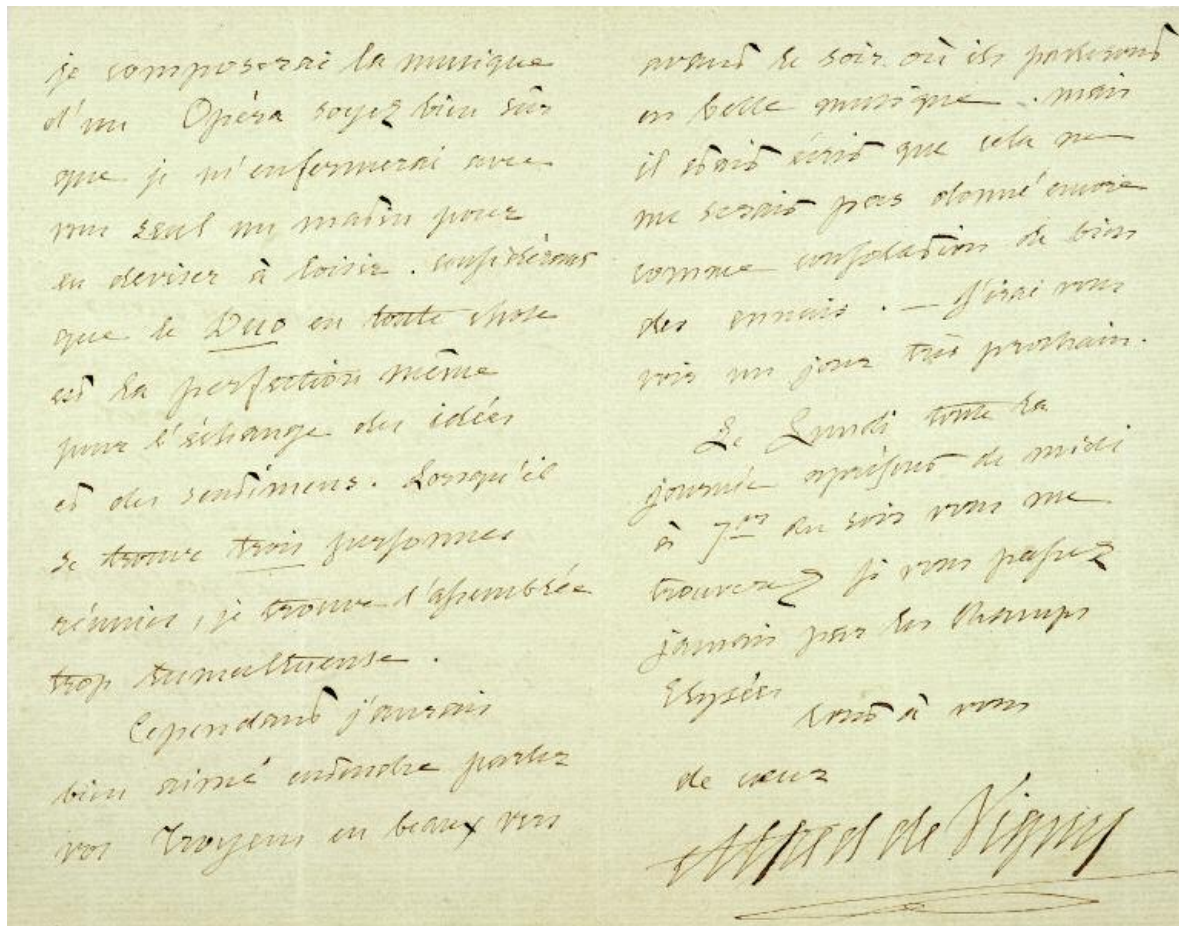 je composerai la musique
d'un Opéra soyez bien sûr
que je m'enfermerai avec
vous seul un matin pour
en deviser à loisir. considérant
que le Duo en toute chose
est la perfection même
pour l'échange des idées
et des sentimens. Lorsqu'il
se trouve trois personnes
réunies, je trouve l'assemblée
trop tumultueuse.
Cependant j'aurais
bien aimé entendre parler
vos Troyens en beaux vers
avant le soir où ils parleront
en belle musique. mais
il était écrit que cela ne
me serait pas donné encore
comme consolation de bien
des ennuis. — J'irai vous
voir un jour très prochain.
Le Lundi toute la
journée à présent de midi
à 7 hes du soir vous me
trouverez si vous passez
jamais par les Champs
Elysées
tout à vous
de cœur
Alfred de Vigny